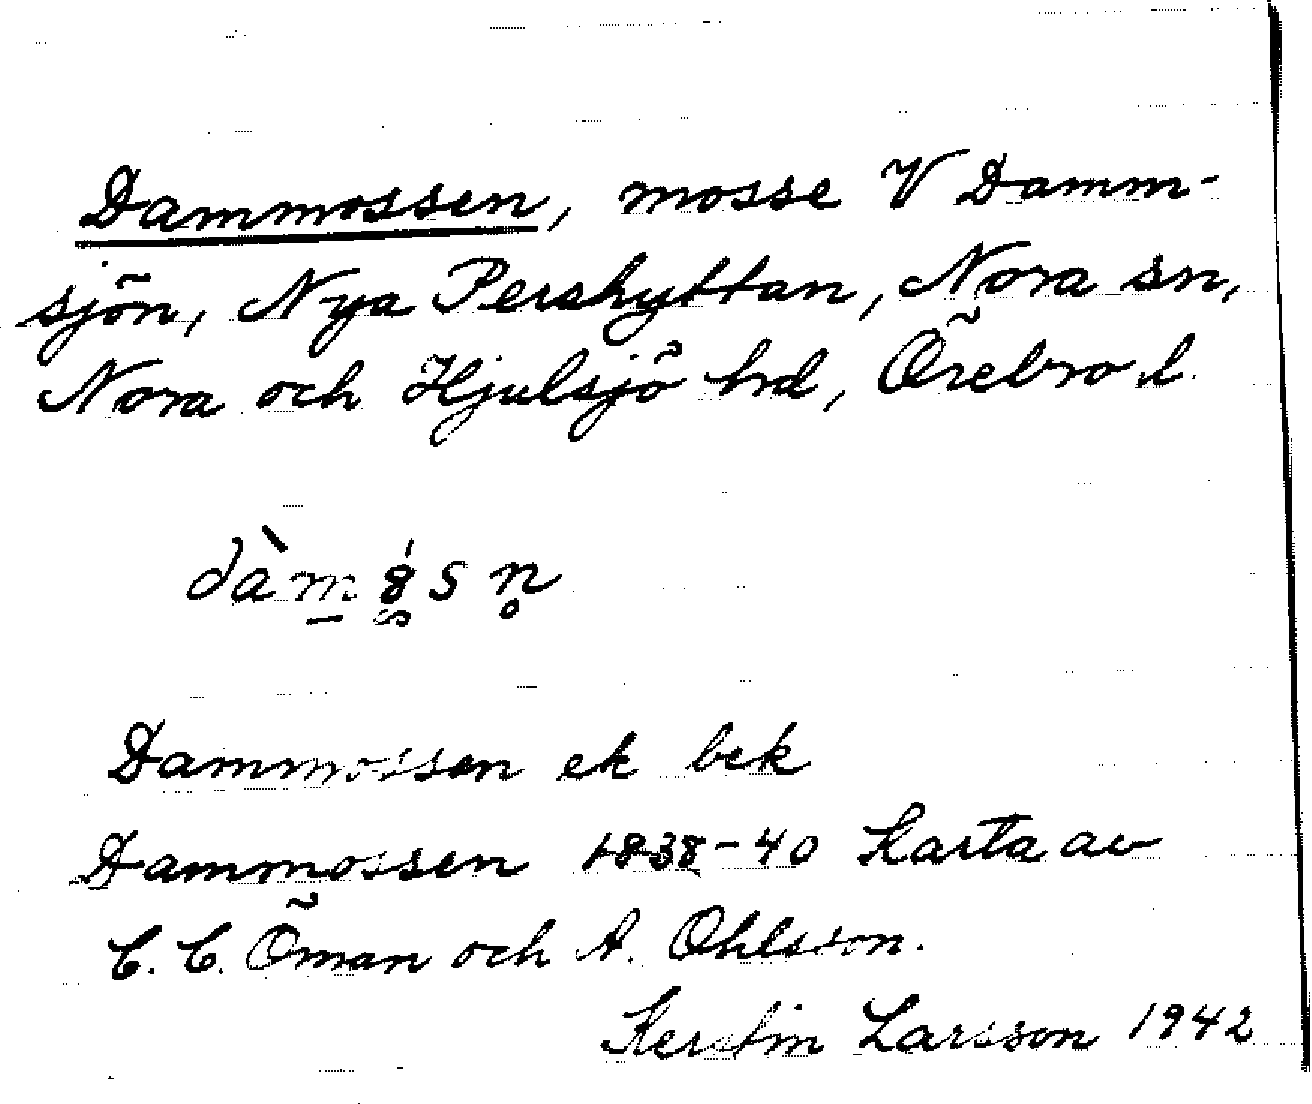 Dammossen, mosse V Damm-
sjön, Nya Pershyttan, Nora sn,
Nora och Hjulsjö hd, Örebro l.
Dammossen ek bek
Dammossen 1838-40 Karta av
C. C. Öman och A. Ohlsson.
Kerstin Larsson 1942